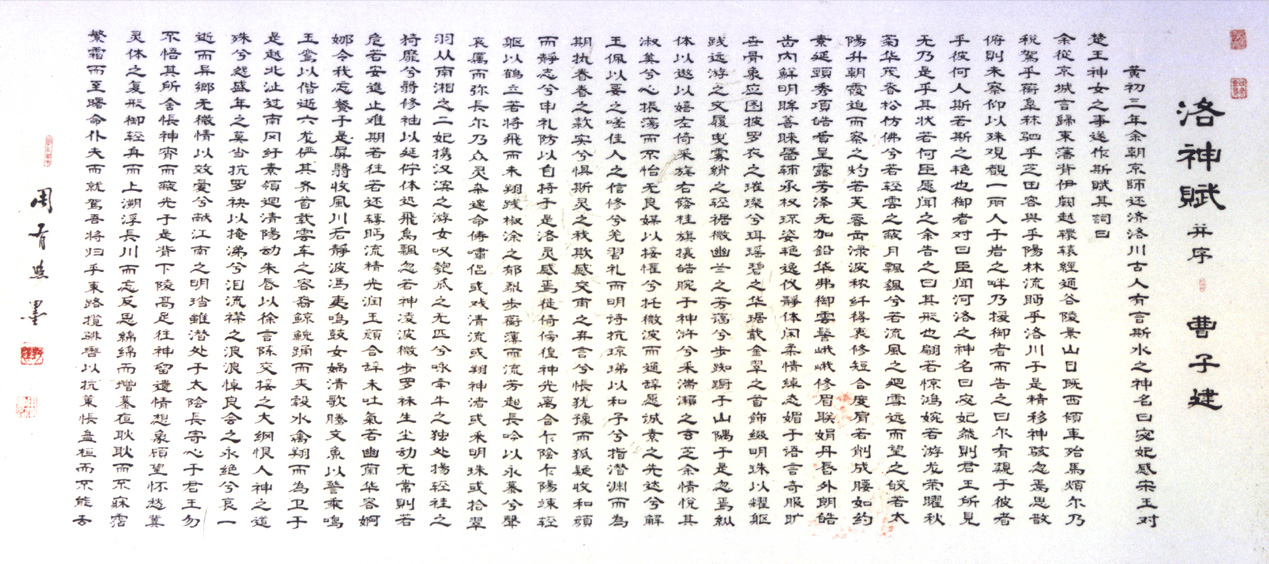 洛神賦 并序 曹子建
黄初三年余朝京师还济洛川古人有言斯水之神名曰宓妃感宋玉对
楚王神女之事遂作斯賦其詞曰
余從京城言歸東藩背伊闕越轘轅經通谷陵景山日既西傾車殆馬煩尔乃
税駕乎蘅皋秣駟乎芝田容與乎陽林流眄乎洛川于是精移神駭忽焉思散
俯則未察仰以殊观覩一丽人于岩之畔乃援御者而告之曰尔有覿于彼者
乎彼何人斯若斯之艳也御者对曰臣聞河洛之神名曰宓妃然則君王所見
无乃是乎其状若何臣愿聞之余告之曰其形也翩若惊鸿婉若游龙荣曜秋
菊华茂春松仿佛兮若轻雲之蔽月飄飖兮若流風之迴雪远而望之皎若太
陽升朝霞迫而察之灼若芙蓉出渌波秾纤得衷修短合度肩若削成腰如约
素延頸秀項皓質呈露芳泽无加鉛华弗御雲髻峨峨修眉联娟丹唇外朗皓
齿内鲜明眸善睐靥辅承权瓌姿艳逸仪静体闲柔情绰态媚于语言奇服旷
世骨象应图披罗衣之璀璨兮珥瑶碧之华琚戴金翠之首飾缀明珠以耀躯
践远游之文履曳雾绡之轻裾微幽兰之芳蔼兮步踟蹰于山隅于是忽焉纵
体以遨以嬉左倚采旄右荫桂旗攘皓腕于神浒兮采湍濑之玄芝余情悦其
淑美兮心振荡而不怡无良媒以接懽兮托微波而通辞愿诚素之先达兮解
玉佩以要之嗟佳人之信修兮羌習礼而明诗抗琼珶以和予兮指潜渊而為
期执眷眷之款实兮惧斯灵之我欺感交甫之弃言兮怅犹豫而狐疑收和顔
而静志兮申礼防以自持于是洛灵感焉徙倚傍徨神光离合乍陰乍陽竦轻
躯以鹤立若将飛而未翔践椒涂之郁烈步蘅薄而流芳超長吟以永慕兮聲
哀厲而弥長尔乃众灵杂遝命俦嘯侣或戏清流或翔神渚或采明珠或拾翠
羽从南湘之二妃携汉滨之游女叹匏瓜之无匹兮咏牵牛之独处扬轻袿之
猗靡兮翳修袖以延伫体迅飛鳧飄忽若神凌波微步罗袜生尘动无常則若
危若安進止难期若往若还转眄流精光润玉顔含辞未吐氣若幽蘭华容婀
娜令我忘餐于是屏翳收風川后静波冯夷鳴鼓女娲清歌腾文魚以警乘鳴
玉鸾以偕逝六龙俨其齐首载雲车之容裔鲸鲵踊而夹毂水禽翔而為卫于
是越北沚过南冈纡素領迴清陽动朱唇以徐言陈交接之大綱恨人神之道
殊兮怨盛年之莫当抗罗袂以掩涕兮泪流襟之浪浪悼良会之永绝兮哀一
逝而异鄉无微情以效爱兮献江南之明珰雖潜处于太陰長寄心于君王忽
不悟其所舍怅神宵而蔽光于是背下陵高足往神留遗情想象顾望怀愁冀
灵体之复形御轻舟而上溯浮長川而忘反思綿綿而增慕夜耿耿而不寐霑
繁霜而至曙命仆夫而就駕吾将归乎東路揽騑辔以抗策怅盘桓而不能去
周 墨